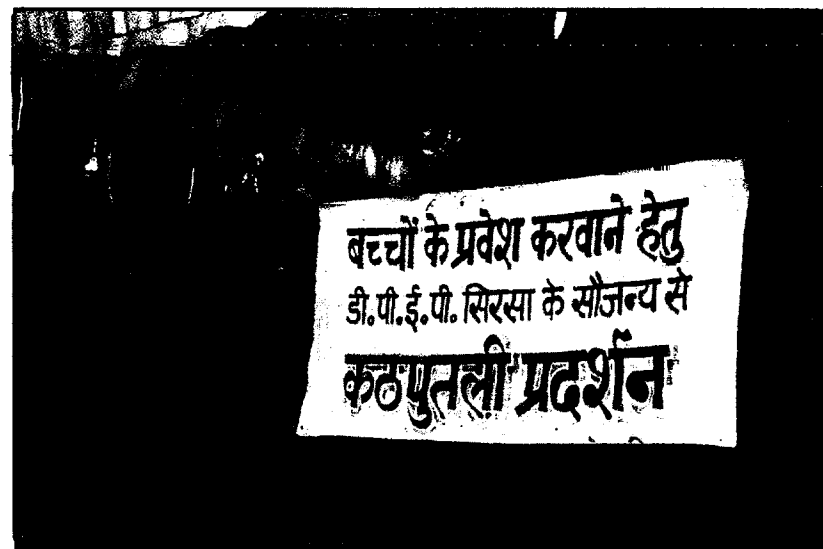 बच्चों के प्रवेश करवाने हेतु
डी.पी.ई.पी. सिरसा के सौजन्य से
कठपुतली प्रदर्शन